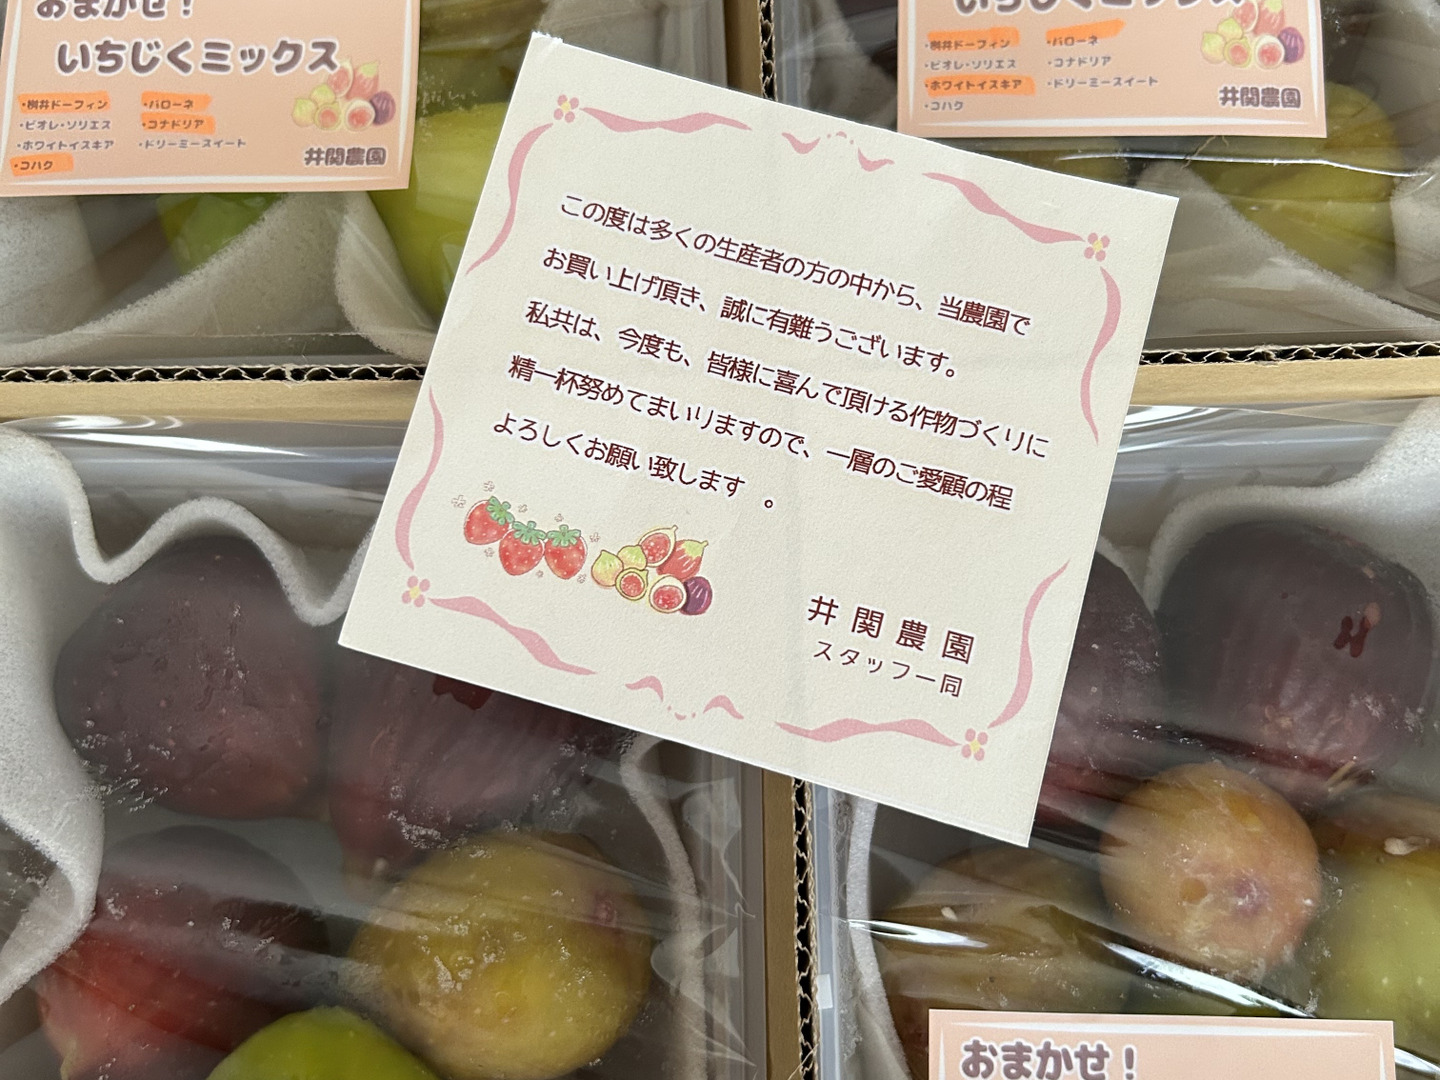 おまかせ！
いちじくミックス
・桝井ドーフィン ・バローネ
・ビオレ・ソリエス ・コナドリア
・ホワイトイスキア ・ドリーミースイート
・コハク
井関農園
いちじくミックス
・桝井ドーフィン ・バローネ
・ビオレ・ソリエス ・コナドリア
・ホワイトイスキア ・ドリーミースイート
・コハク
井関農園
この度は多くの生産者の方の中から、当農園で
お買い上げ頂き、誠に有難うございます。
私共は、今度も、皆様に喜んで頂ける作物づくりに
精一杯努めてまいりますので、一層のご愛顧の程
よろしくお願い致します 。
井関農園
スタッフ一同
おまかせ！